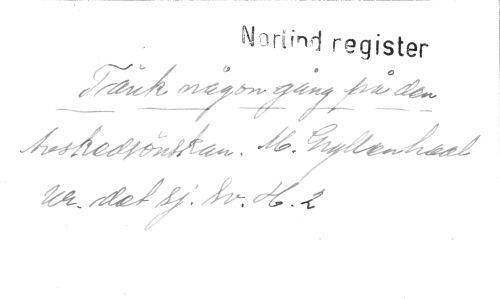 Norlind register
Tänk någon gång på den
Avskedsönskan. M. Gyllenhaal
Ur. det sj. Sv. H. 2